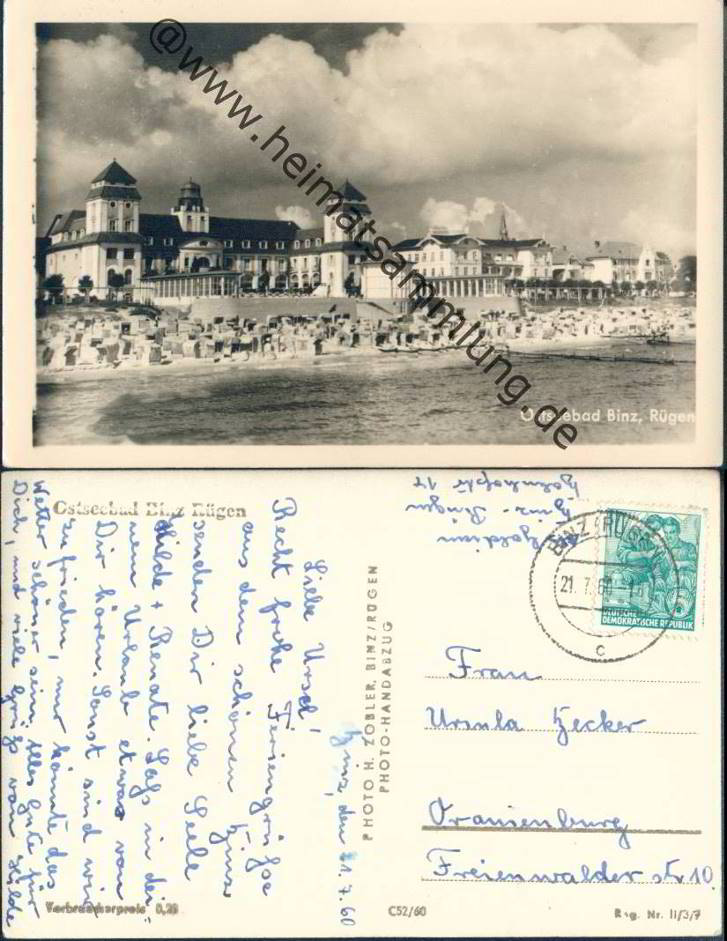 @www.heimatsammlung.de
Ostseebad Binz, Rügen
Ostseebad Binz Rügen
Binz, den 21.7.60
Liebe Ursel,
Recht frohe Feriengrüße
aus dem schönen Binz
senden Dir liebe Seele
Hilde + Renate. Laß in dei-
nem Urlaub etwas von
Dir hören. Sonst sind wir
zufrieden, nur könnte das
Wetter schöner sein. Alles Gute für
Dich, und viele Grüße von Hilde
Verbraucherpreis 0,20
PHOTO H. ZOBLER, BINZ/RÜGEN
PHOTO-HANDABZUG
C52/60
Binz - Rügen
Bahnhofstr 14
BINZ (RÜGEN)
21. 7. 60
c
DEUTSCHE
DEMOKRATISCHE REPUBLIK
Frau
Ursula Hecker
Oranienburg
Freienwalder str 10
Reg. Nr. II/3/7